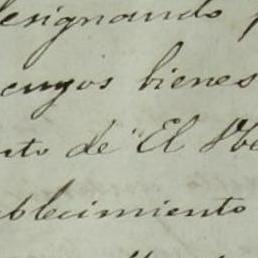 esignando
cuyos bienes
nto de "El He
ablecimiento